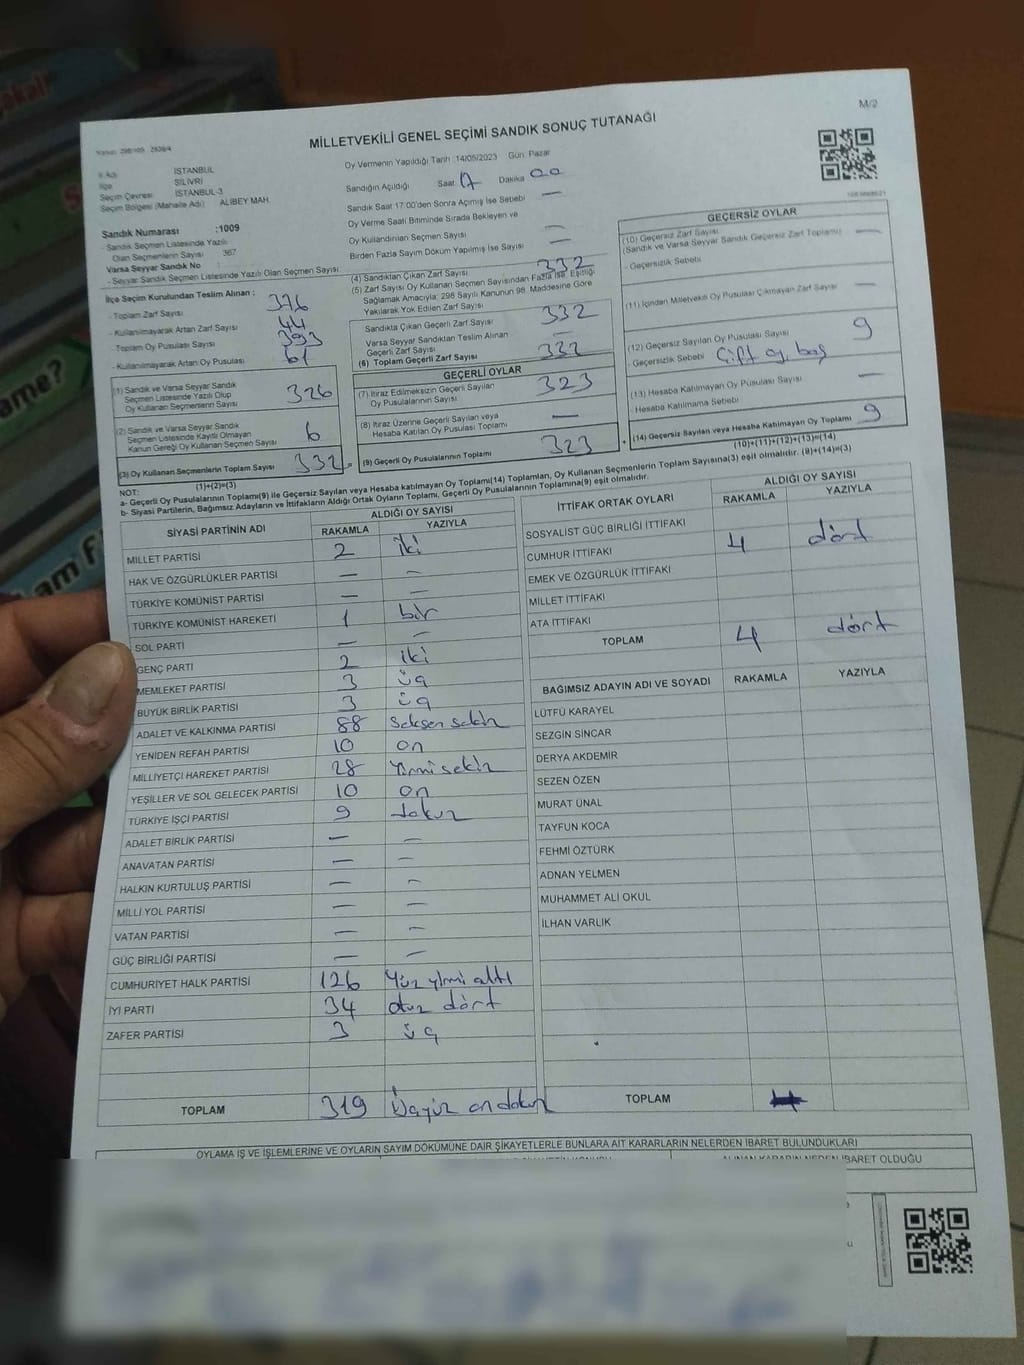 M/2
MİLLETVEKİLİ GENEL SEÇİMİ SANDIK SONUÇ TUTANAĞI
İl Adı İSTANBUL
İlçe SİLİVRİ
Seçim Çevresi İSTANBUL-3
Seçim Bölgesi (Mahalle Adı) ALİBEY MAH.
Sandık Numarası :1009
- Sandık Seçmen Listesinde Yazılı
Olan Seçmenlerin Sayısı 367
Varsa Seyyar Sandık No :
- Seyyar Sandık Seçmen Listesinde Yazılı Olan Seçmen Sayısı
Oy Vermenin Yapıldığı Tarih :14/05/2023 Gün: Pazar
Sandığın Açıldığı Saat 17 Dakika 00
Sandık Saat 17:00'den Sonra Açılmış İse Sebebi —
Oy Verme Saati Bitiminde Sırada Bekleyen ve
Oy Kullandırılan Seçmen Sayısı —
Birden Fazla Sayım Döküm Yapılmış İse Sayısı —
İlçe Seçim Kurulundan Teslim Alınan :
- Toplam Zarf Sayısı 376
- Kullanılmayarak Artan Zarf Sayısı 44
- Toplam Oy Pusulası Sayısı 393
- Kullanılmayarak Artan Oy Pusulası 61
(1) Sandık ve Varsa Seyyar Sandık
Seçmen Listesinde Yazılı Olup
Oy Kullanan Seçmenlerin Sayısı 326
(2) Sandık ve Varsa Seyyar Sandık
Seçmen Listesinde Kayıtlı Olmayan
Kanun Gereği Oy Kullanan Seçmen Sayısı 6
(3) Oy Kullanan Seçmenlerin Toplam Sayısı 332
(1)+(2)=(3)
(4) Sandıktan Çıkan Zarf Sayısı 332
(5) Zarf Sayısı Oy Kullanan Seçmen Sayısından Fazla İse, Eşitliği
Sağlamak Amacıyla; 298 Sayılı Kanunun 98. Maddesine Göre
Yakılarak Yok Edilen Zarf Sayısı —
Sandıkta Çıkan Geçerli Zarf Sayısı 332
Varsa Seyyar Sandıktan Teslim Alınan
Geçerli Zarf Sayısı —
(6) Toplam Geçerli Zarf Sayısı 332
GEÇERLİ OYLAR
(7) İtiraz Edilmeksizin Geçerli Sayılan
Oy Pusulalarının Sayısı 323
(8) İtiraz Üzerine Geçerli Sayılan veya
Hesaba Katılan Oy Pusulası Toplamı —
(9) Geçerli Oy Pusulalarının Toplamı 323
GEÇERSİZ OYLAR
(10) Geçersiz Zarf Sayısı
(Sandık ve Varsa Seyyar Sandık Geçersiz Zarf Toplamı) —
- Geçersizlik Sebebi
(11) İçinden Milletvekili Oy Pusulası Çıkmayan Zarf Sayısı —
(12) Geçersiz Sayılan Oy Pusulası Sayısı 9
Geçersizlik Sebebi Çift oy, boş
(13) Hesaba Katılmayan Oy Pusulası Sayısı —
Hesaba Katılmama Sebebi
(14) Geçersiz Sayılan veya Hesaba Katılmayan Oy Toplamı 9
(10)+(11)+(12)+(13)=(14)
NOT:
a- Geçerli Oy Pusulalarının Toplamı(9) ile Geçersiz Sayılan veya Hesaba Katılmayan Oy Toplamı(14) Toplamları, Oy Kullanan Seçmenlerin Toplam Sayısına(3) eşit olmalıdır. (9)+(14)=(3)
b- Siyasi Partilerin, Bağımsız Adayların ve İttifakların Aldığı Ortak Oyların Toplamı, Geçerli Oy Pusulalarının Toplamına(9) eşit olmalıdır.
SİYASİ PARTİNİN ADI ALDIĞI OY SAYISI
RAKAMLA YAZIYLA
MİLLET PARTİSİ 2 iki
HAK VE ÖZGÜRLÜKLER PARTİSİ — —
TÜRKİYE KOMÜNİST PARTİSİ — —
TÜRKİYE KOMÜNİST HAREKETİ 1 bir
SOL PARTİ — —
GENÇ PARTİ 2 iki
MEMLEKET PARTİSİ 3 üç
BÜYÜK BİRLİK PARTİSİ 3 üç
ADALET VE KALKINMA PARTİSİ 88 seksen sekiz
YENİDEN REFAH PARTİSİ 10 on
MİLLİYETÇİ HAREKET PARTİSİ 28 Yirmi sekiz
YEŞİLLER VE SOL GELECEK PARTİSİ 10 on
TÜRKİYE İŞÇİ PARTİSİ 9 dokuz
ADALET BİRLİK PARTİSİ — —
ANAVATAN PARTİSİ — —
HALKIN KURTULUŞ PARTİSİ — —
MİLLİ YOL PARTİSİ — —
VATAN PARTİSİ — —
GÜÇ BİRLİĞİ PARTİSİ — —
CUMHURİYET HALK PARTİSİ 126 Yüz yirmi altı
İYİ PARTİ 34 otuz dört
ZAFER PARTİSİ 3 üç
TOPLAM 319 Üçyüz on dokuz
İTTİFAK ORTAK OYLARI ALDIĞI OY SAYISI
RAKAMLA YAZIYLA
SOSYALİST GÜÇ BİRLİĞİ İTTİFAKI
CUMHUR İTTİFAKI 4 dört
EMEK VE ÖZGÜRLÜK İTTİFAKI
MİLLET İTTİFAKI
ATA İTTİFAKI
TOPLAM 4 dört
BAĞIMSIZ ADAYIN ADI VE SOYADI RAKAMLA YAZIYLA
LÜTFÜ KARAYEL
SEZGİN SİNCAR
DERYA AKDEMİR
SEZEN ÖZEN
MURAT ÜNAL
TAYFUN KOCA
FEHMİ ÖZTÜRK
ADNAN YELMEN
MUHAMMET ALİ OKUL
İLHAN VARLIK
TOPLAM
OYLAMA İŞ VE İŞLEMLERİNE VE OYLARIN SAYIM DÖKÜMÜNE DAİR ŞİKAYETLERLE BUNLARA AİT KARARLARIN NELERDEN İBARET BULUNDUKLARI
ALINAN KARARIN NEDEN İBARET OLDUĞU